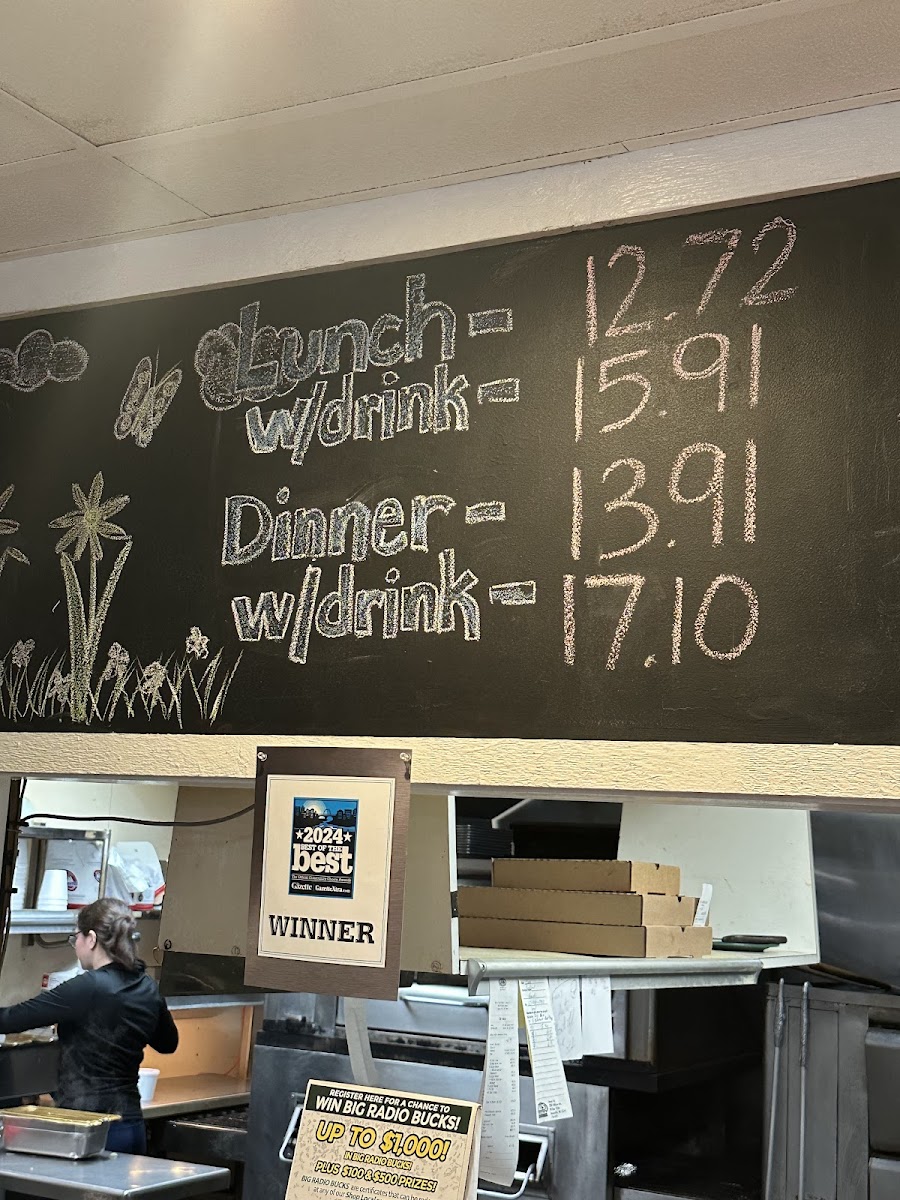 Lunch - 12.72
w/drink - 15.91
Dinner - 13.91
w/drink - 17.10
★2024★
BEST OF THE
best
Gazette GazetteXtra.com
WINNER
REGISTER HERE FOR A CHANCE TO
WIN BIG RADIO BUCKS!
UP TO $1,000!
IN BIG RADIO BUCKS!
PLUS $100 & $500 PRIZES!
BIG RADIO BUCKS are certificates that can be
at any of our Shop Local